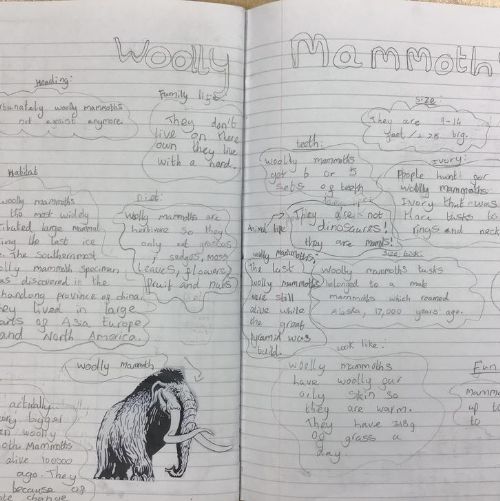 Woolly Mammoth
Heading:
woolly mammoths
not exist anymore.
Family life
They don't
live on there
own they live
with a hard.
Habitat
woolly mammoths
the most widely
large mammal
the last ice
The southernmost
mammoth specimen
was discovered in the
Shandong province of china.
They lived in large
parts of Asia Europe
and North America.
Diet:
Woolly mammoths are
herbivore so they
only eat grasses,
sedges, moss
leaves, flowers
fruit and nuts
woolly mammoth
actually
bigger
woolly
Mammoths
alive 100000
ago. They
because of
climate change
size:
They are 9-14
feet / 2.78 big.
teeth:
woolly mammoths
got 6 or 5
sets of teeth
Ivory:
People hunt for
woolly mammoths
Ivory that was
tusks to
rings and neck
Animal life
They are not
dinosaures!
they are
woolly mammoths:
The last
woolly mammoths
were still
alive while
the great
pyramid was
build.
woolly mammoths tusks
belonged to a male
mammoths which roamed
Alaska, 17,000 years ago.
Look like:
woolly mammoths
have woolly fur
oily skin so
they are warm.
They have
of grass a
day.
Fun
Mammo
up to
to